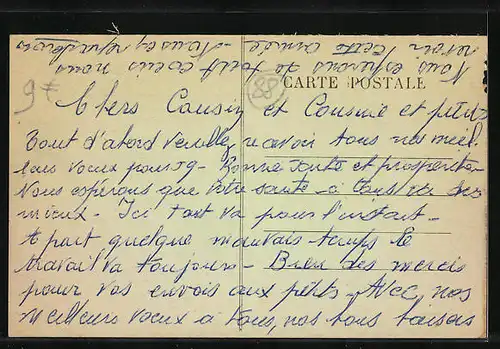 Chers Cousin et Cousine et petits
Tout d'abord veuillez recevoir tous nos meil-
leurs vœux pour 59 - Bonne santé et prospérité -
Nous espérons que votre santé à tous va des
mieux - Ici tout va pour l'instant -
A part quelque mauvais temps le
travail va toujours - Bien des mercis
pour vos envois aux petits - Avec nos
meilleurs vœux à tous, nos bons baisers
Nous espérons de tout cœur nous
revoir cette année -
CARTE POSTALE
88
9€